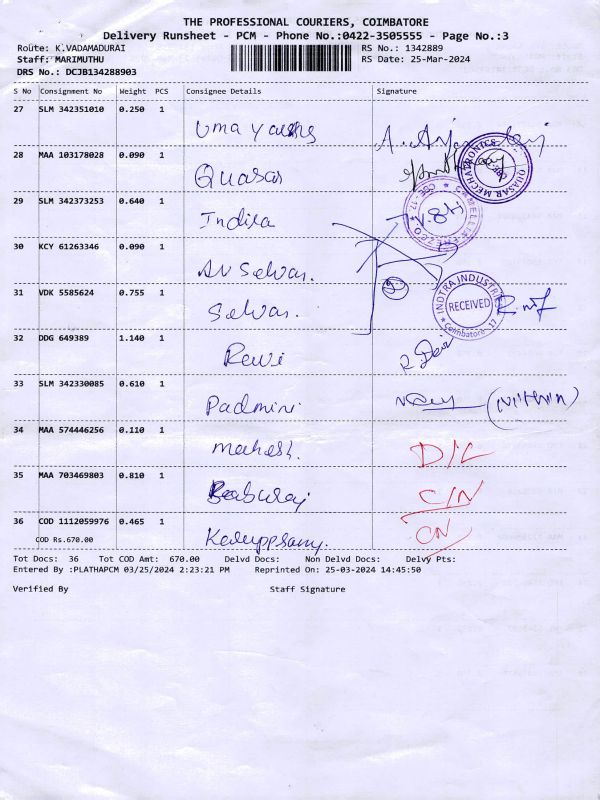 THE PROFESSIONAL COURIERS, COIMBATORE
Delivery Runsheet - PCM - Phone No.:0422-3505555 - Page No.:3
Route: K.VADAMADURAI RS No.: 1342889
Staff: MARIMUTHU RS Date: 25-Mar-2024
DRS No.: DCJB134288903
S No Consignment No Weight PCS Consignee Details Signature
27 SLM 342351010 0.250 1 Uma
28 MAA 103178028 0.090 1 Quasar
QUASAR MECHATRONICS
29 SLM 342373253 0.640 1 Indira
CBE-17
30 KCY 61263346 0.090 1 Selvar.
31 VDK 5585624 0.755 1 Selvar.
INDTRA INDUSTRIES
RECEIVED
Coimbatore - 17
32 DDG 649389 1.140 1 Revi
33 SLM 342330085 0.610 1 Padmini (Nithin)
34 MAA 574446256 0.110 1 Mahesh. D/L
35 MAA 703469803 0.810 1 Baburaj C/N
36 COD 1112059976 0.465 1 CN
COD Rs.670.00
Tot Docs: 36 Tot COD Amt: 670.00 Delvd Docs: Non Delvd Docs: Delvy Pts:
Entered By :PLATHAPCM 03/25/2024 2:23:21 PM Reprinted On: 25-03-2024 14:45:50
Verified By Staff Signature